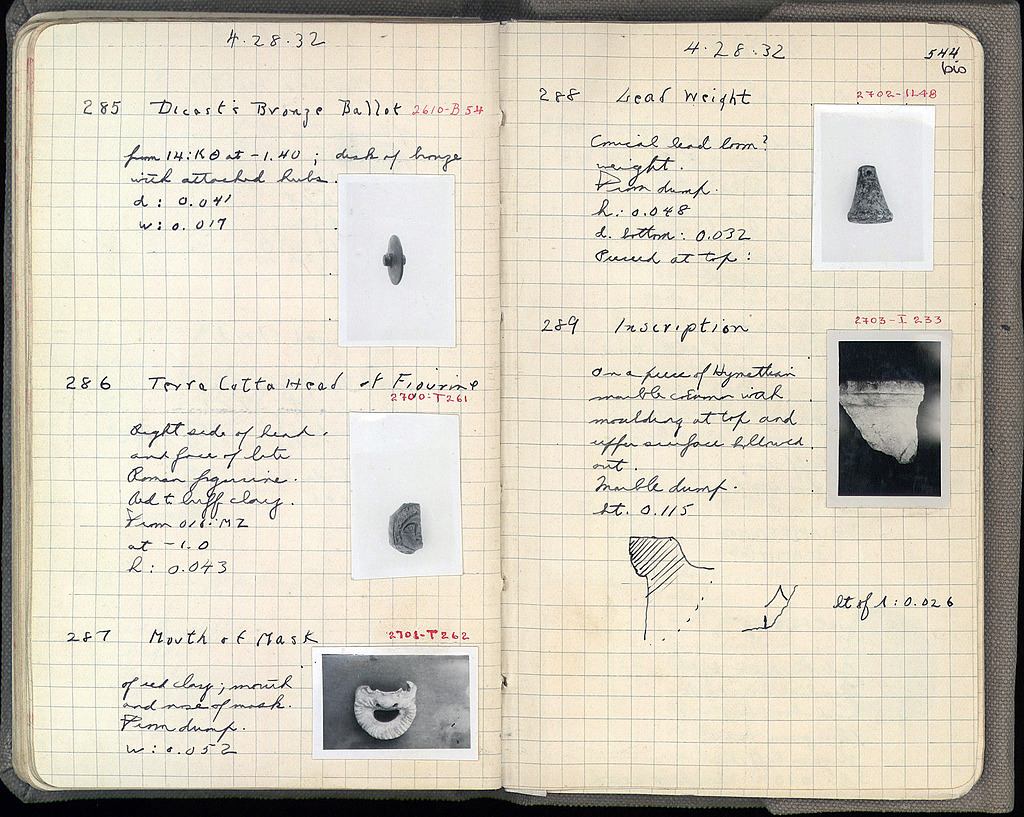 4.28.32
285 Dicast's Bronze Ballot 2610-B 54
from 14:ΚΘ at -1.40; disk of bronze
with attached hubs.
d: 0.041
w: 0.017
286 Terra Cotta Head of Figurine
2700-T261
Right side of head
and face of late
Roman figurine.
Red to buff clay.
From
at -1.0
h: 0.043
287 Mouth of Mask 2701-T262
of red clay; mouth
and nose of mask.
From dump.
w: 0.052
4.28.32
544
bis
288 Lead Weight 2702-IL48
Conical lead loom?
weight.
From dump.
h: 0.048
d. bottom: 0.032
Pierced at top:
289 Inscription 2703-I 233
On a piece of Hymettian
marble column with
moulding at top and
upper surface hollowed
out.
Marble dump.
ht. 0.115
ht of 0.026